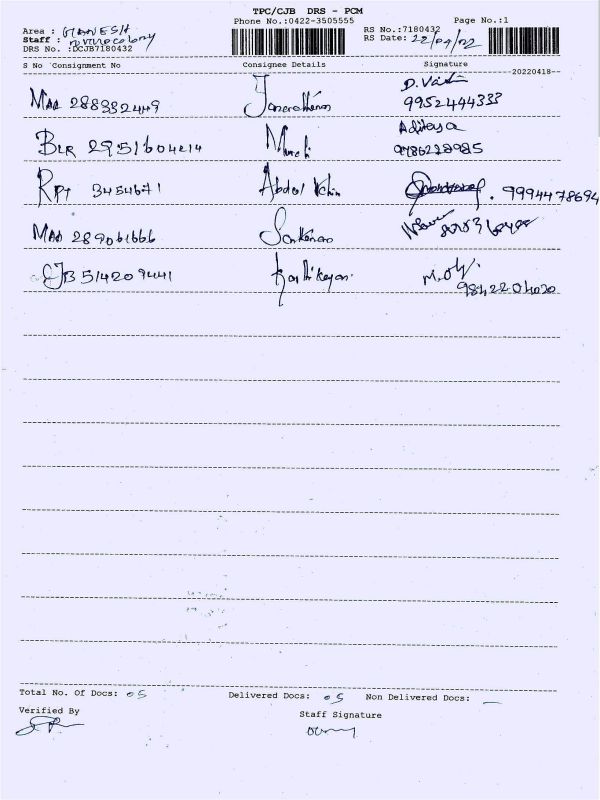 TPC/CJB DRS - PCM
Phone No.:0422-3505555 Page No.:1
Area : GANESH
Staff : colony
RS No.:7180432
RS Date: 22/04/22
DRS No. :DCJB7180432
S No Consignment No Consignee Details Signature
20220418
MAA 288332449 Janarathanan D. 9952444333
BLR 2951604214 Murali Aditaya
RPT 3454671 Abdul 9994478694
MAA 289061666 Sankaran
CJB 514209441 Karthikeyan 9842204020
Total No. Of Docs: 05 Delivered Docs: 05 Non Delivered Docs: —
Verified By Staff Signature